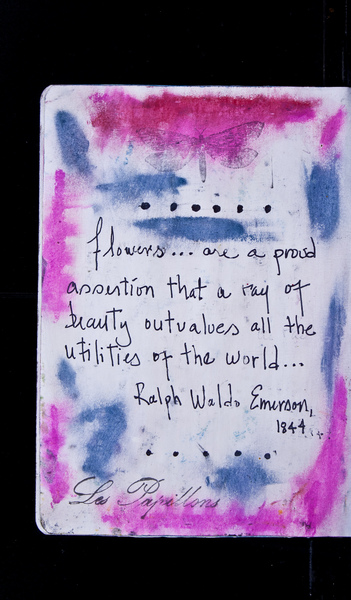 flowers... are a proud
assertion that a ray of
beauty outvalues all the
utilities of the world...
Ralph Waldo Emerson,
1844
Les Papillons